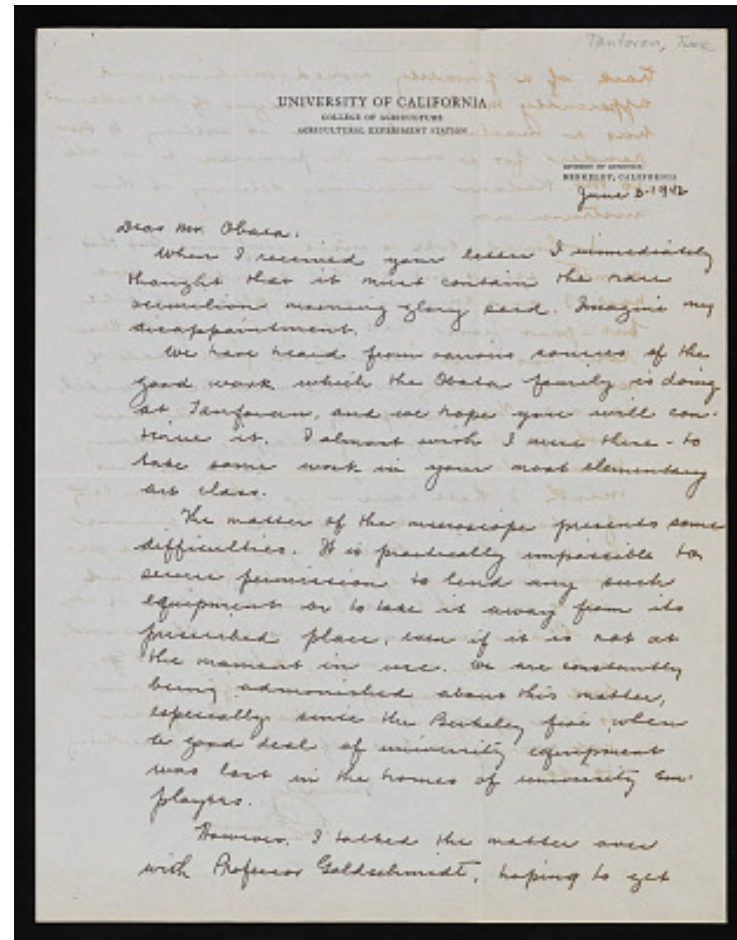 Tanforan, June
UNIVERSITY OF CALIFORNIA
COLLEGE OF AGRICULTURE
AGRICULTURAL EXPERIMENT STATION
BERKELEY, CALIFORNIA
June 3-1942
Dear Mr. Obata:
When I received your letter I immediately
thought that it must contain the rare
vermilion morning glory seed. Imagine my
disappointment.
We have heard from various sources of the
good work which the Obata family is doing
at Tanforan, and we hope you will con-
tinue it. I almost wish I were there - to
take some work in your most elementary
art class.
The matter of the microscope presents some
difficulties. It is practically impossible to
secure permission to lend any such
equipment or to take it away from its
prescribed place, even if it is not at
the moment in use. We are constantly
being admonished about this matter,
especially since the Berkeley fire when
a good deal of university equipment
was lost in the homes of university em-
ployees.
However, I talked the matter over
with Professor Goldschmidt, hoping to get